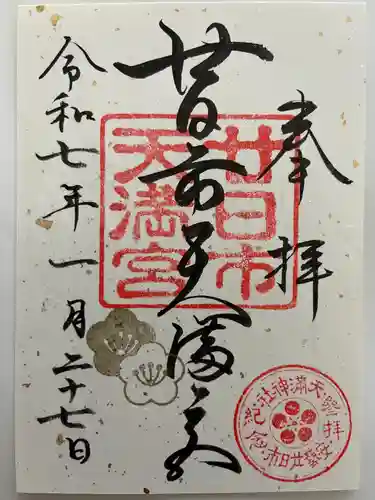 奉拝
廿日市天満宮
令和七年一月二十七日
廿日市
天満宮